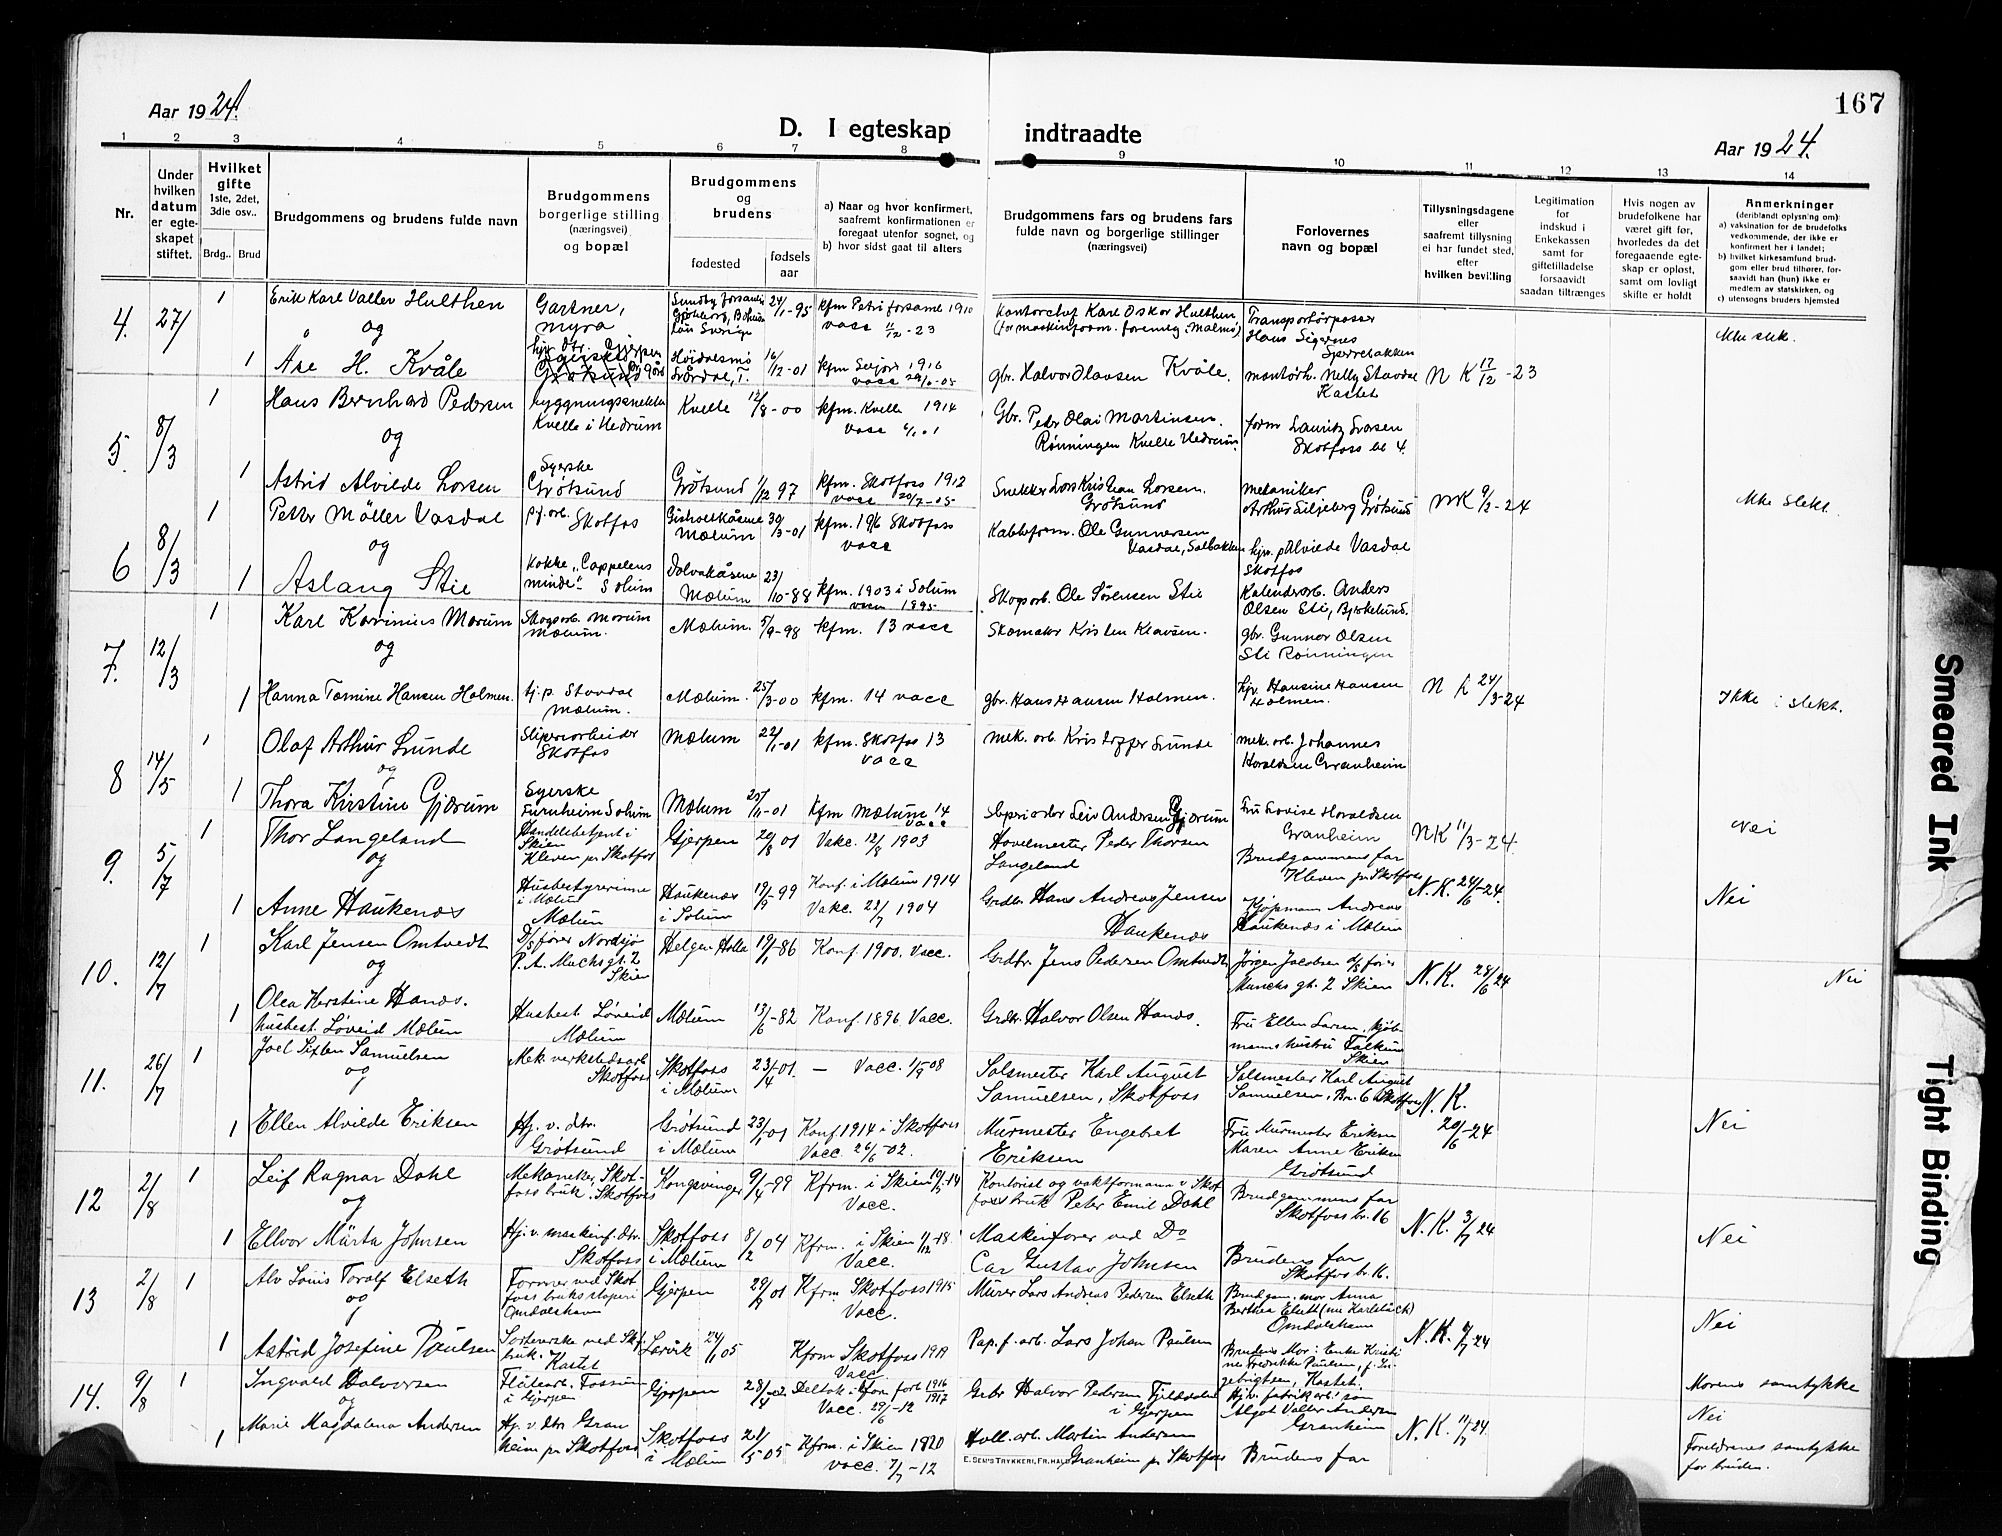 167
Aar 1924.
D. I egteskap indtraadte
Aar 1924.
1 2 3 4 5 6 7 8 9 10 11 12 13 14
Nr.
Under hvilken datum er egteskapet stiftet.
Hvilket gifte
1ste, 2det, 3die osv..
Brdg.. Brud
Brudgommens og brudens fulde navn
Brudgommens borgerlige stilling (næringsvei) og bopæl
Brudgommens og brudens
fødested
fødsels aar
a) Naar og hvor konfirmert, saafremt konfirmationen er foregaat utenfor sognet, og
b) hvor sidst gaat til alters
Brudgommens fars og brudens fars fulde navn og borgerlige stillinger (næringsvei)
Forlovernes navn og bopæl
Tillysningsdagene eller saafremt tillysning ei har fundet sted, efter hvilken bevilling
Legitimation for indskud i Enkekassen samt for giftetilladelse forsaavidt saadan tiltrænges
Hvis nogen av brudefolkene har været gift før, hvorledes da det foregaaende egteskap er opløst, samt om lovligt skifte er holdt
Anmerkninger
(deriblandt oplysning om):
a) vaksination for de brudefolks vedkommende, der ikke er konfirmert her i landet;
b) hvilket kirkesamfund brudgom eller brud tilhører, forsaavidt han (hun) ikke er medlem av statskirken, og
c) utensogns bruders hjemsted
4. 27/ 1 Erik Karl Valler Hulthen Gartner, myra 24/1-95 kfm Petri forsaml 1910 vacc 11/12-23 Kontorchef Karl Oskar Hulthen Transportørpasser Hans Sigernes Sperrebakken Ikke slek.
og
1 Åse H. Kvåle Høidalsmo 16/12-01 kfm Seljord 1916 gbr. Halvor Olavsen Kvåle. montørh. Nelly Stavdal Kastet N K 17/12-23
5. 8/3 1 Hans Bernhard Pedersen Kvelle i Hedrum Kvelle 12/8-00 kfm. Kvelle 1914 vacc Gbr. Peder Olai Martinsen. Rønningen Kvelle Hedrum form Lauritz Larsen Skotfoss bl 4.
og
1 Astrid Alvilde Larsen Syerske Grötsund Grötsund 1/12 97 kfm. Skotfoss 1912 vacc 20/7-05 Snekker Lars Kristian Larsen. Grötsund mekaniker Arthur Siljeberg Grötsund NK 9/2-24 Ikke slekt.
6 8/3 1 Petter Möller Vasdal Skotfos Mælum 30/3-01 kfm. 1916 Skotfoss vacc Kableform. Ole Gunnersen Vasdal, Solbakken hjv. Alvilde Vasdal Skotfos
og
1 Aslaug Stie Kokke „Cappelens minde" Solum Dolvakåsene Mælum 23/10-88 kfm. 1903 i Solum vacc 1895 Skogsarb. Ole Sørensen Stie Kalenderarb. Anders Olsen Sti, Bjerkelund.
7. 12/3 1 Karl Karinius Marum Skogsarb. Marum Mælum. Mælum. 5/9-98 kfm. 13 vacc Skomaker Kristen Klavsen. gbr. Gunnar Olsen Sti Rønningen
og
1 Hanna Tomine Hansen Holmen. tj.p. Stavdal Mælum. Mælum. 25/3-00 kfm. 14 vacc gbr. Hans Hansen Holmen. hjv. Hansine Hansen Holmen. N K 24/3-24 Ikke i slekt.
8 14/5 1 Olaf Arthur Lunde Sliperiarbeider Skotfos Mælum 22/1-01 kfm. Skotfos 13 vacc mek. arb. Kristoffer Lunde mek. arb. Johannes Haraldsen Granheim
og
1 Thora Kirstine Gjærum Syerske Furuheim Solum Mælum 25/11-01 kfm Mælum 14 vacc Leiv Andersen Gjærum Fru Lovise Haraldsen Granheim NK 11/3-24. Nei
9. 5/7 1 Thor Langeland Handelsbetjent i Skien Kleven pr Skotfos Gjerpen 20/8 01 Vakc. 12/8 1903 Hovelmester Peder Thorsen Langeland Brudgommens far Kleven pr Skotfos
og
1 Anne Haukenæs Husbestyrerinne i Mælum Mælum Haukenæs i Solum 19/9-99 Konf. i Mælum 1914 Vakc. 22/7 1904 Grdbr. Hans Andreas Jensen Haukenæs Kjøpmann Andreas Haukenæs i Mælum N.K. 24/6-24. Nei
10. 12/7 1 Karl Jensen Omtvedt D/s fører Nordsjø P. A. Munchs gt. 2 Skien Helgen Holla 19/1-86 Konf. 1900. Vacc. Grdbr. Jens Pedersen Omtvedt Jørgen Jacobsen d/s fører Munchs gt. 2 Skien N.K. 28/6 24 Nei
og
1 Olea Kerstine Hanås. husbest. Løveid Mælum Husbest Løveid Mælum Mælum 13/6-82 Konf. 1896. Vacc. Grdbr. Halvor Olsen Hanås. Fru Ellen Larsen, kjøbmanns hustru Falkum Skien
11. 26/7 1 Joel Sixten Samuelsen Mek. verkstedsarb. Skotfoss Skotfoss i Mælum 23/4-01. – Vacc. 1/9 08 Salsmester Karl August Samuelsen, Skotfoss Salsmester Karl August Samuelsen, Br. 6 Skotfoss N.K. 20/6-24
og
1 Ellen Alvilde Eriksen Hj. v. dtr. Grötsund Grötsund i Mælum 23/1-01 Konf 1914 i Skotfoss Vacc. 26/6-02. Murmester Engebret Eriksen Fru Murmester Eriksen Maren Anne Eriksen Grötsund Nei
12 2/8 1 Leif Ragnar Dahl Mekaniker, Skotfoss bruk, Skotfoss Kongsvinger 9/4-99 Kfrm. i Skien 10/5-14 Vacc. Kontorist og vaktformann v Skotfoss bruk Peter Emil Dahl Brudgommens far Skotfoss br. 16 N.K. 3/7 24
og
1 Ellvor Märta Johnsen Hj. v. maskinf. dtr. Skotfoss Skotfoss i Mælum 8/2 04 Kfrm. i Skien 1/12-18. Vacc. Maskinfører ved Do Carl Gustav Johnsen Brudens far Skotfoss br. 16. Nei
13 2/8 1 Alv Louis Toralf Elseth Former ved Skotfoss bruks støperi Omdalshavn Gjerpen 29/9 01 Kfrm. Skotfoss 1915 Vacc. Murer Lars Andreas Pedersen Elseth Brudgom. mor Anna Berthea Elseth (nu Karlsbäck) Omdalshavn
og
1 Astrid Josefine Paulsen Sorterske ved Skf. bruk. Kastet Larvik 24/11 05 Kfrm Skotfoss 1919 Vacc. Pap. f. arb. Lars Johan Paulsen Brudens Mor: Enke Kristine Fredrikke Paulsen, f. Ingebrigtsen, Kastet. N.K. 9/7 24 Nei
14. 9/8 1 Ingvald Halvorsen Flåtearb. Fossum i Gjerpen Gjerpen 28/4-02 Deltok i kfm. forb 1916/1917 Vacc. 29/6-12 Gbr Halvor Pedersen Fjelldalen i Gjerpen Algot Valter Andersen Granheim Morens samtykke
og
1 Marie Magdalena Andersen Hj. v. dtr Granheim pr Skotfoss Skotfoss i Mælum 21/5 05 Kfrm. i Skien 1820 vacc. 7/7-12 Holl. arb. Martin Andersen Granheim pr Skotfoss Brudens far N.K. 11/7 24. Nei Foreldrenes samtykke for bruden.
E. SEM'S TRYKKERI, FR.HALD
Smeared Ink
Tight Binding